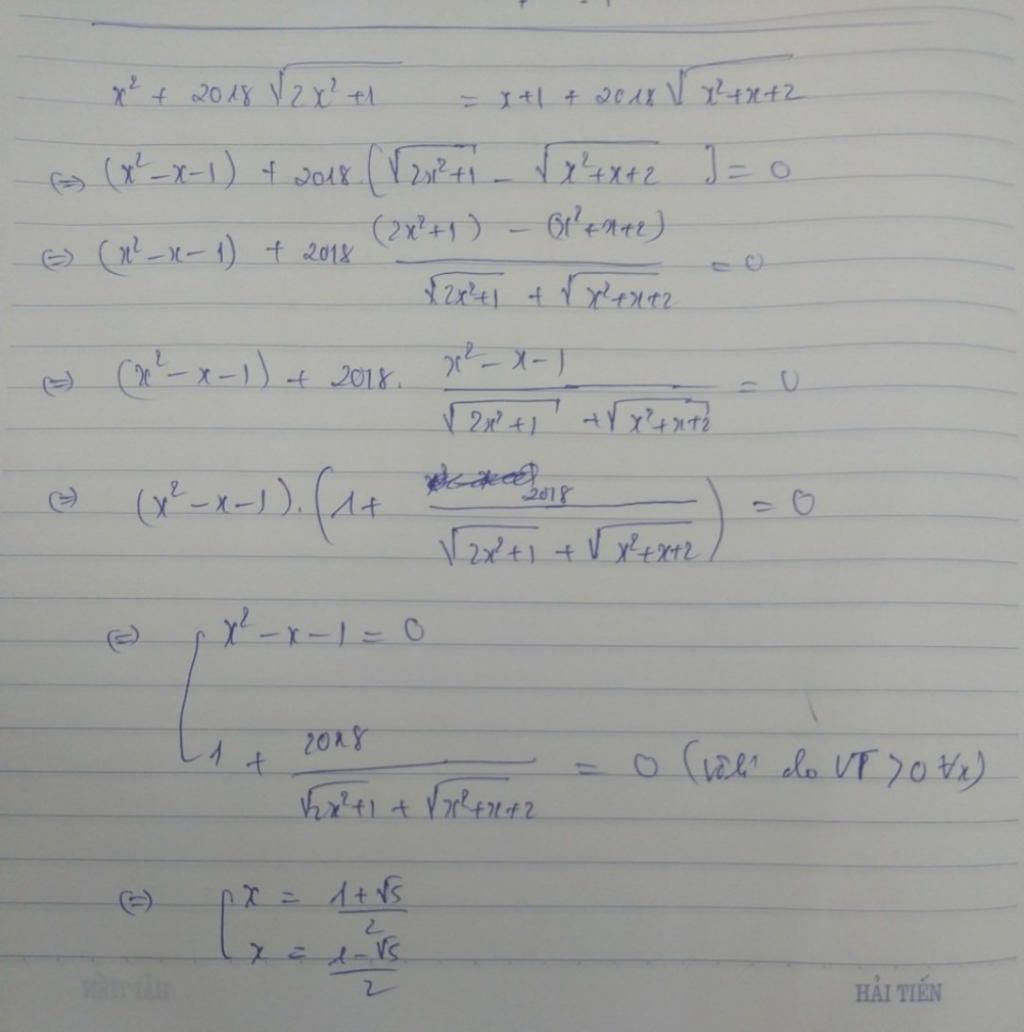 x² + 2018 √(2x²+1) = x+1 + 2018 √(x²+x+2)
(=) (x²-x-1) + 2018. [√(2x²+1) - √(x²+x+2)] = 0
(=) (x²-x-1) + 2018 ((2x²+1) - (x²+x+2))/(√(2x²+1) + √(x²+x+2)) = 0
(=) (x²-x-1) + 2018. (x²-x-1)/(√(2x²+1) + √(x²+x+2)) = 0
(=) (x²-x-1).(1+ 2018/(√(2x²+1) + √(x²+x+2))) = 0
(=) [ x²-x-1 = 0
1 + 2018/(√(2x²+1) + √(x²+x+2)) = 0 (vô lí do VT >0 ∀x)
(=) [ x = (1+√5)/2
x = (1-√5)/2
HẢI TIẾN